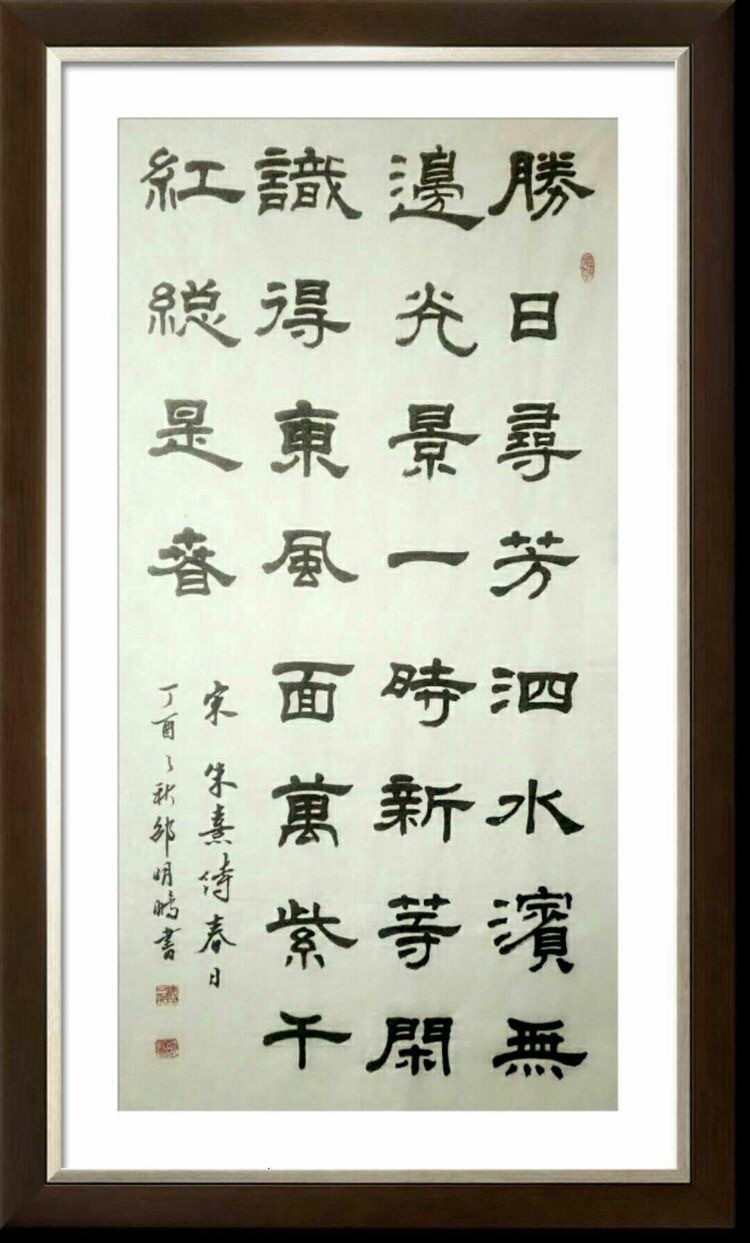 勝日尋芳泗水濱無
邊光景一時新等閑
識得東風面萬紫千
紅総是春
宋 朱熹诗春日
丁酉之秋邹明鹏書